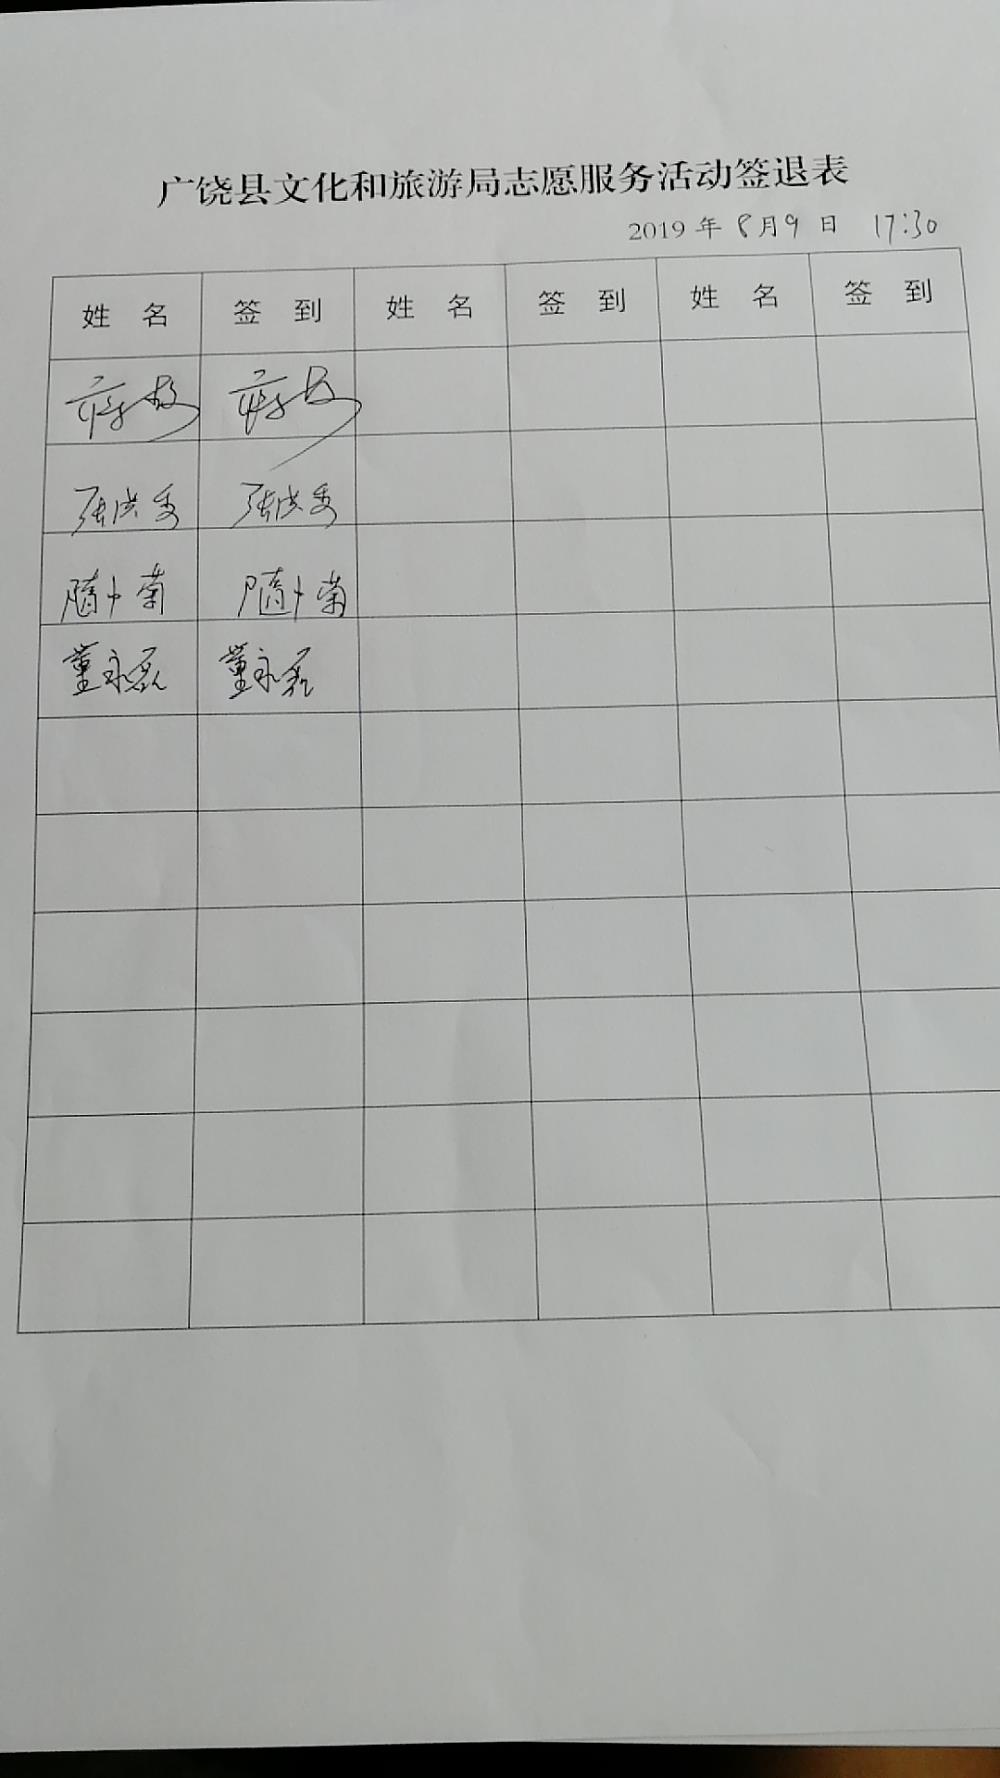 广饶县文化和旅游局志愿服务活动签退表
2019 年 8月9 日 17:30
姓 名 签 到 姓 名 签 到 姓 名 签 到
张洪秀 张洪秀
随小菊 随小菊
董永磊 董永磊